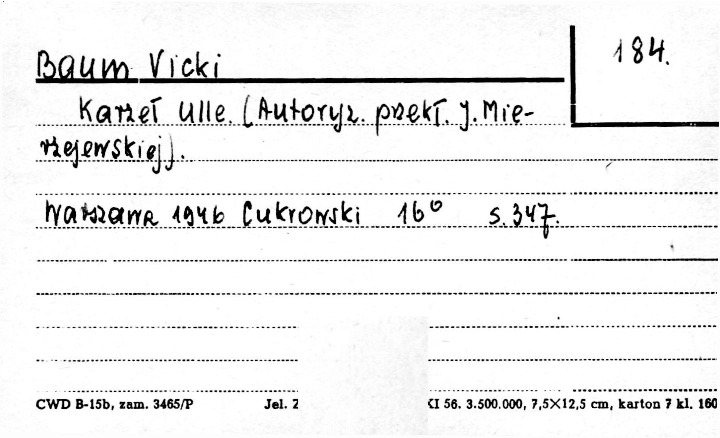 Baum Vicki
184.
Karzeł Ulle. (Autoryz. przekł. J. Mie-
rzejewskiej).
Warszawa 1946 Cukrowski 16° s. 347.
CWD B-15b, zam. 3465/P Jel. Z XI 56. 3.500.000, 7,5×12,5 cm, karton 7 kl. 160